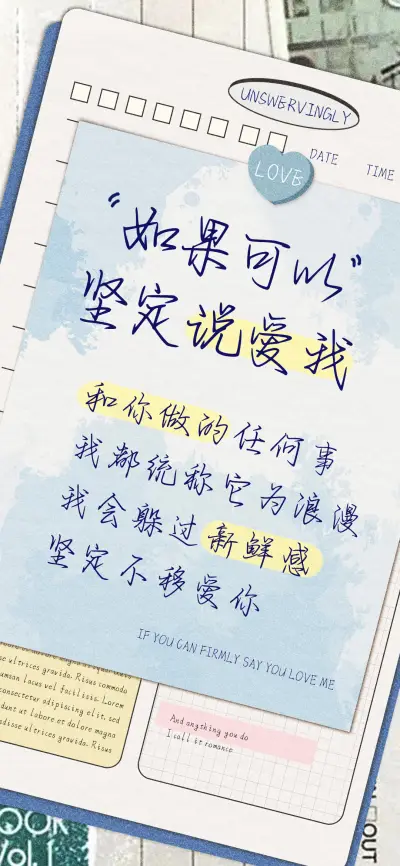 UNSWERVINGLY
LOVE
DATE
TIME
“如果可以”
坚定说爱我
和你做的任何事
我都统称它为浪漫
我会躲过新鲜感
坚定不移爱你
IF YOU CAN FIRMLY SAY YOU LOVE ME
se ultrices gravida. Risus commodo
umsan lacus vel facilisis. Lorem
consectetur adipiscing elit, sed
dunt ut labore et dolore magna
adisse ultrices gravida. Risus
And anything you do
I call it romance
OOK
Vol.1
OUT